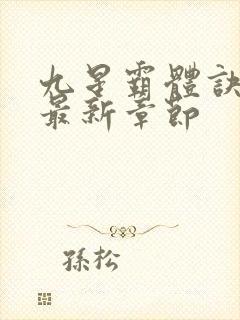 九星霸體訣
最新章節
孫松